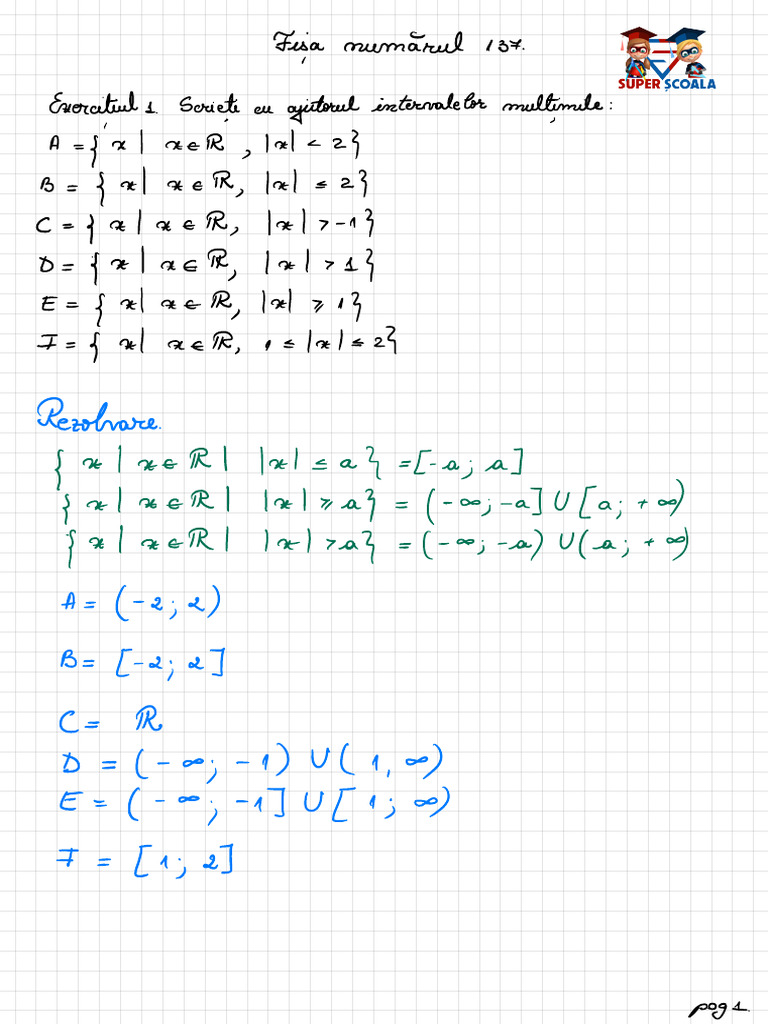 Fișa numărul 137.
SUPER ȘCOALA
Exercițiul 1. Scrieți cu ajutorul intervalelor mulțimile:
A = { x | x ∈ ℝ, |x| < 2}
B = { x | x ∈ ℝ, |x| ≤ 2}
C = { x | x ∈ ℝ, |x| > -1}
D = { x | x ∈ ℝ, |x| > 1}
E = { x | x ∈ ℝ, |x| ≥ 1}
F = { x | x ∈ ℝ, 1 ≤ |x| ≤ 2}
Rezolvare.
{ x | x ∈ ℝ | |x| ≤ a} = [-a; a]
{ x | x ∈ ℝ | |x| ≥ a} = (-∞; -a] U [a; +∞)
{ x | x ∈ ℝ | |x| > a} = (-∞; -a) U (a; +∞)
A = (-2; 2)
B = [-2; 2]
C = ℝ
D = (-∞; -1) U (1, ∞)
E = (-∞; -1] U [1; ∞)
F = [1; 2]
pag 1.